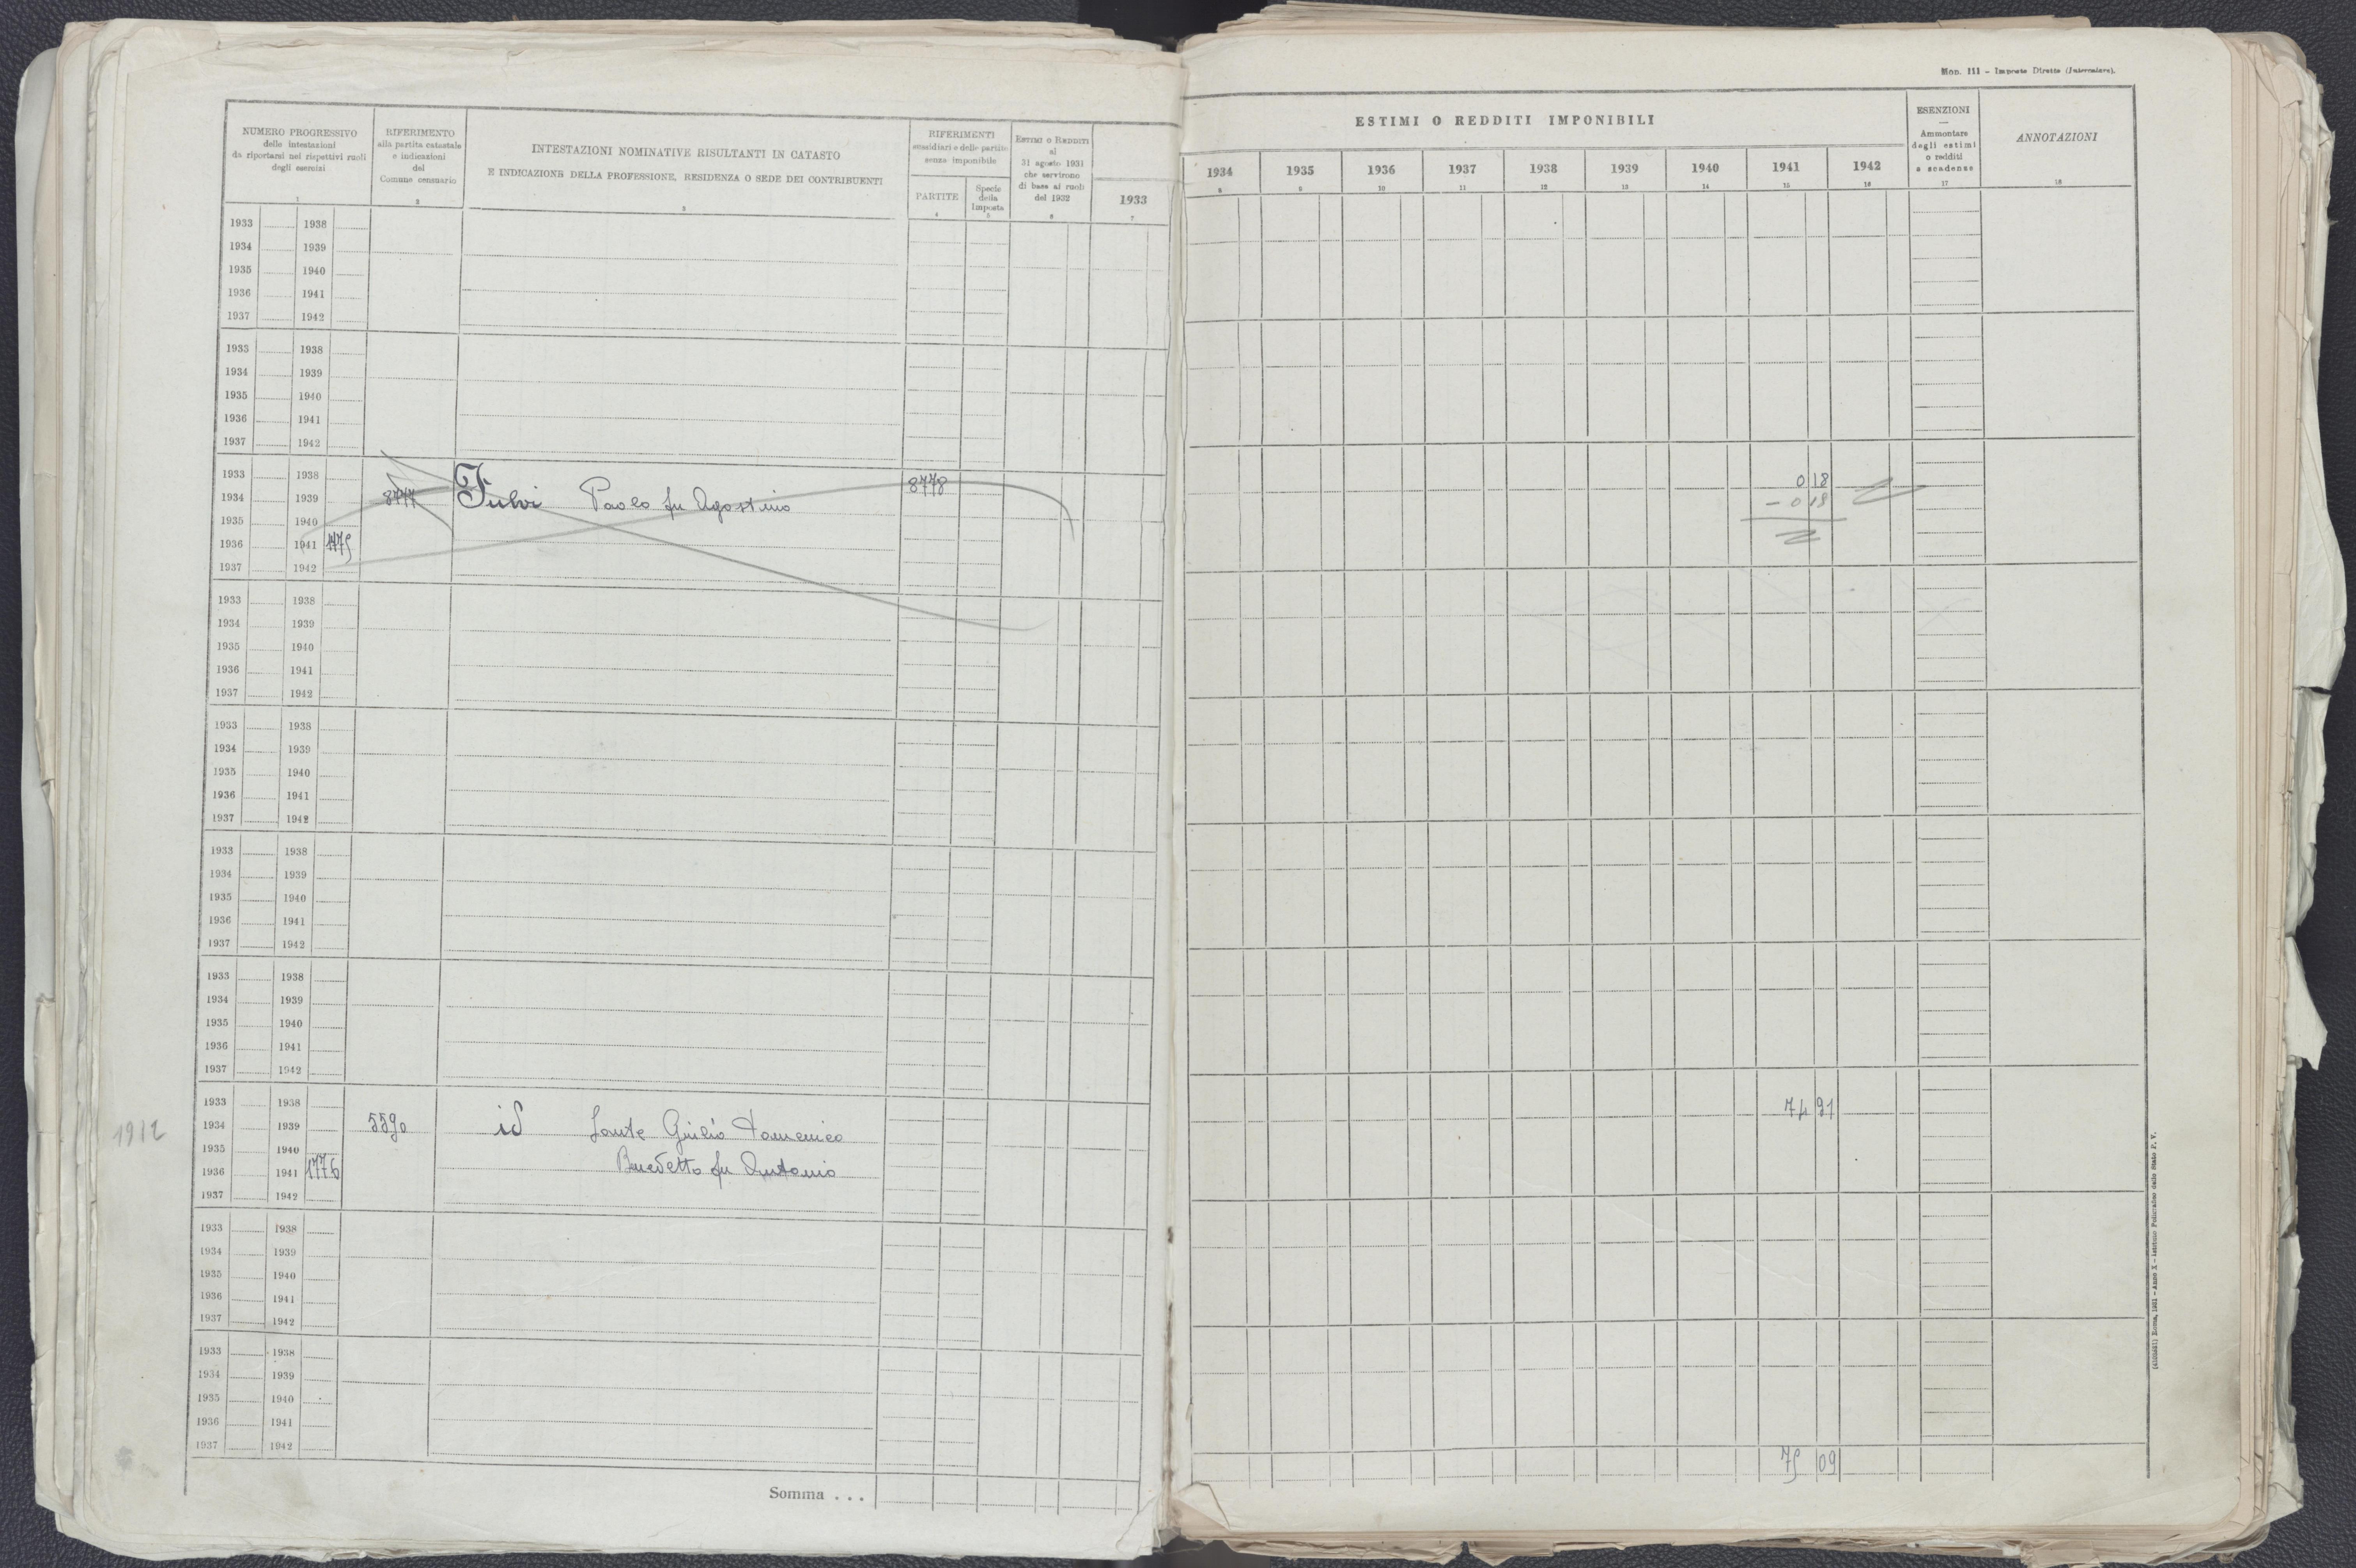 Mod. 111 – Imposte Dirette (Intercalare).
NUMERO PROGRESSIVO
delle intestazioni
da riportarsi nei rispettivi ruoli
degli esercizi
1
RIFERIMENTO
alla partita catastale
e indicazioni
del
Comune censuario
2
INTESTAZIONI NOMINATIVE RISULTANTI IN CATASTO
E INDICAZIONE DELLA PROFESSIONE, RESIDENZA O SEDE DEI CONTRIBUENTI
3
RIFERIMENTI
sussidiari e delle partite
senza imponibile
PARTITE
4
Specie
della
Imposta
5
Estimi o Redditi
al
31 agosto 1931
che servirono
di base ai ruoli
del 1932
6
1933
7
ESTIMI O REDDITI IMPONIBILI
1934 1935 1936 1937 1938 1939 1940 1941 1942
8 9 10 11 12 13 14 15 16
ESENZIONI
—
Ammontare
degli estimi
o redditi
a scadenza
17
ANNOTAZIONI
18
1933 1938
1934 1939
1935 1940
1936 1941
1937 1942
1933 1938
1934 1939
1935 1940
1936 1941
1937 1942
1933 1938 8778 0 18
1934 1939 8777 Fulvi Paolo fu Agostino – 0 18
1935 1940
1936 1941 1775
1937 1942
1933 1938
1934 1939
1935 1940
1936 1941
1937 1942
1933 1938
1934 1939
1935 1940
1936 1941
1937 1942
1933 1938
1934 1939
1935 1940
1936 1941
1937 1942
1933 1938
1934 1939
1935 1940
1936 1941
1937 1942
1933 1938 74 91
1912 1934 1939 5590 id Sante Giulio Domenico
1935 1940
1936 1941 1776 Benedetto fu Antonio
1937 1942
1933 1938
1934 1939
1935 1940
1936 1941
1937 1942
1933 1938
1934 1939
1935 1940
1936 1941
1937 1942
75 09
Somma . . .
Roma, 1931 – Anno X – Istituto Poligrafico dello Stato P. V.